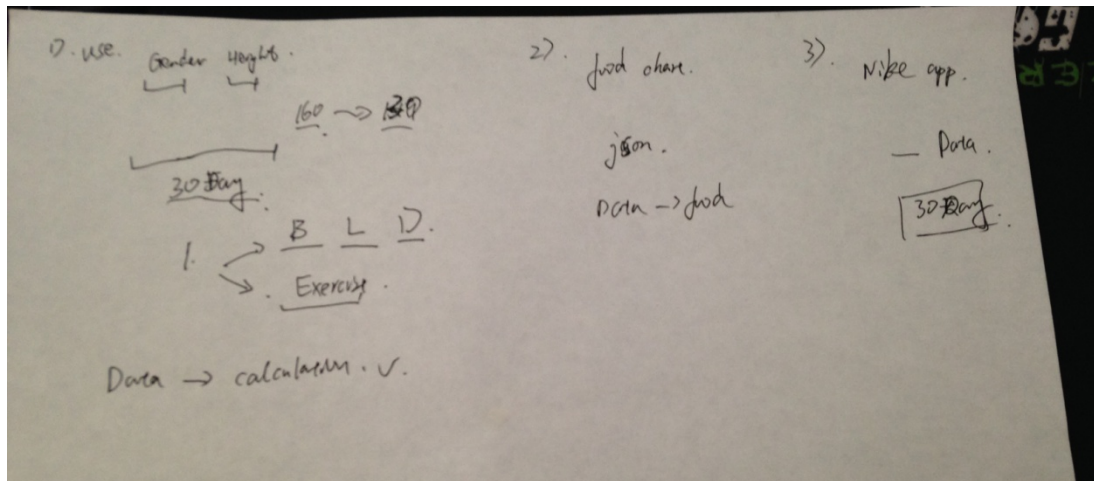 1). use. Gender Height.
160 →
30 Day.
1. B L D.
Exercise.
Data → calculation. ✓.
2). food share.
json.
Data → food
3). Nike app.
— Data.
30 Day.